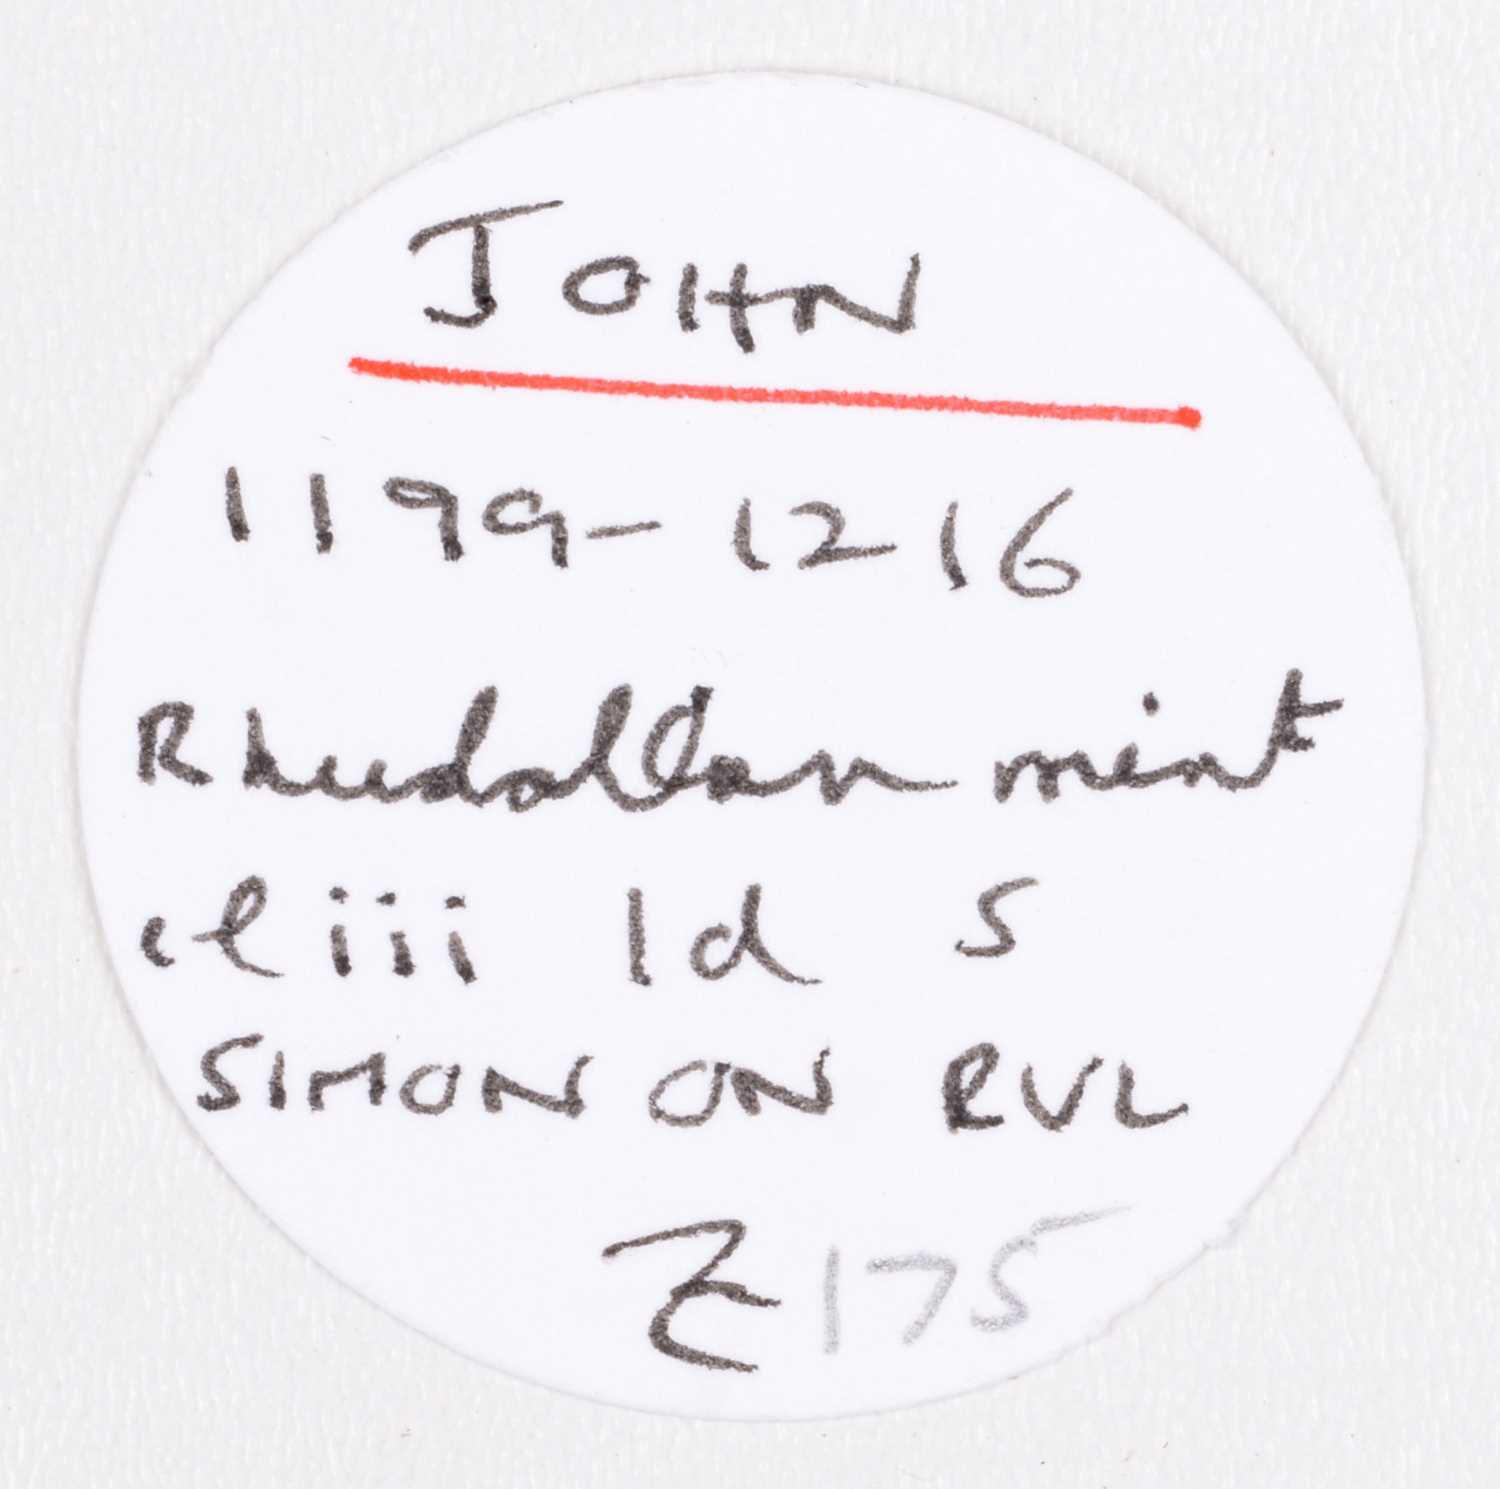 JOHN
1199-1216
Rhuddlan mint
cl iii 1d S
SIMON ON RVL
175